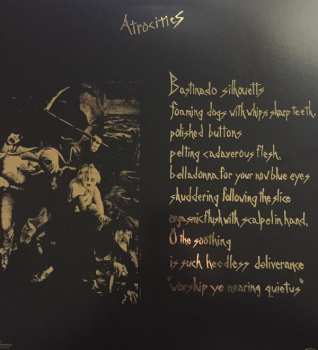 Atrocities
Bastinado silhouetts
foaming dogs with whips sharp teeth,
polished buttons
pelting cadaverous flesh,
belladonna for your now blue eyes
shuddering following the slice
orgasmic flush with scalpel in hand,
O the soothing
is such heedless deliverance
"worship ye nearing quietus"